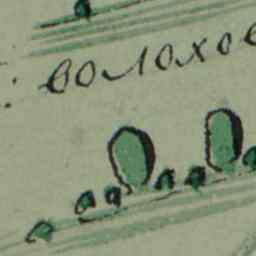 : волохов